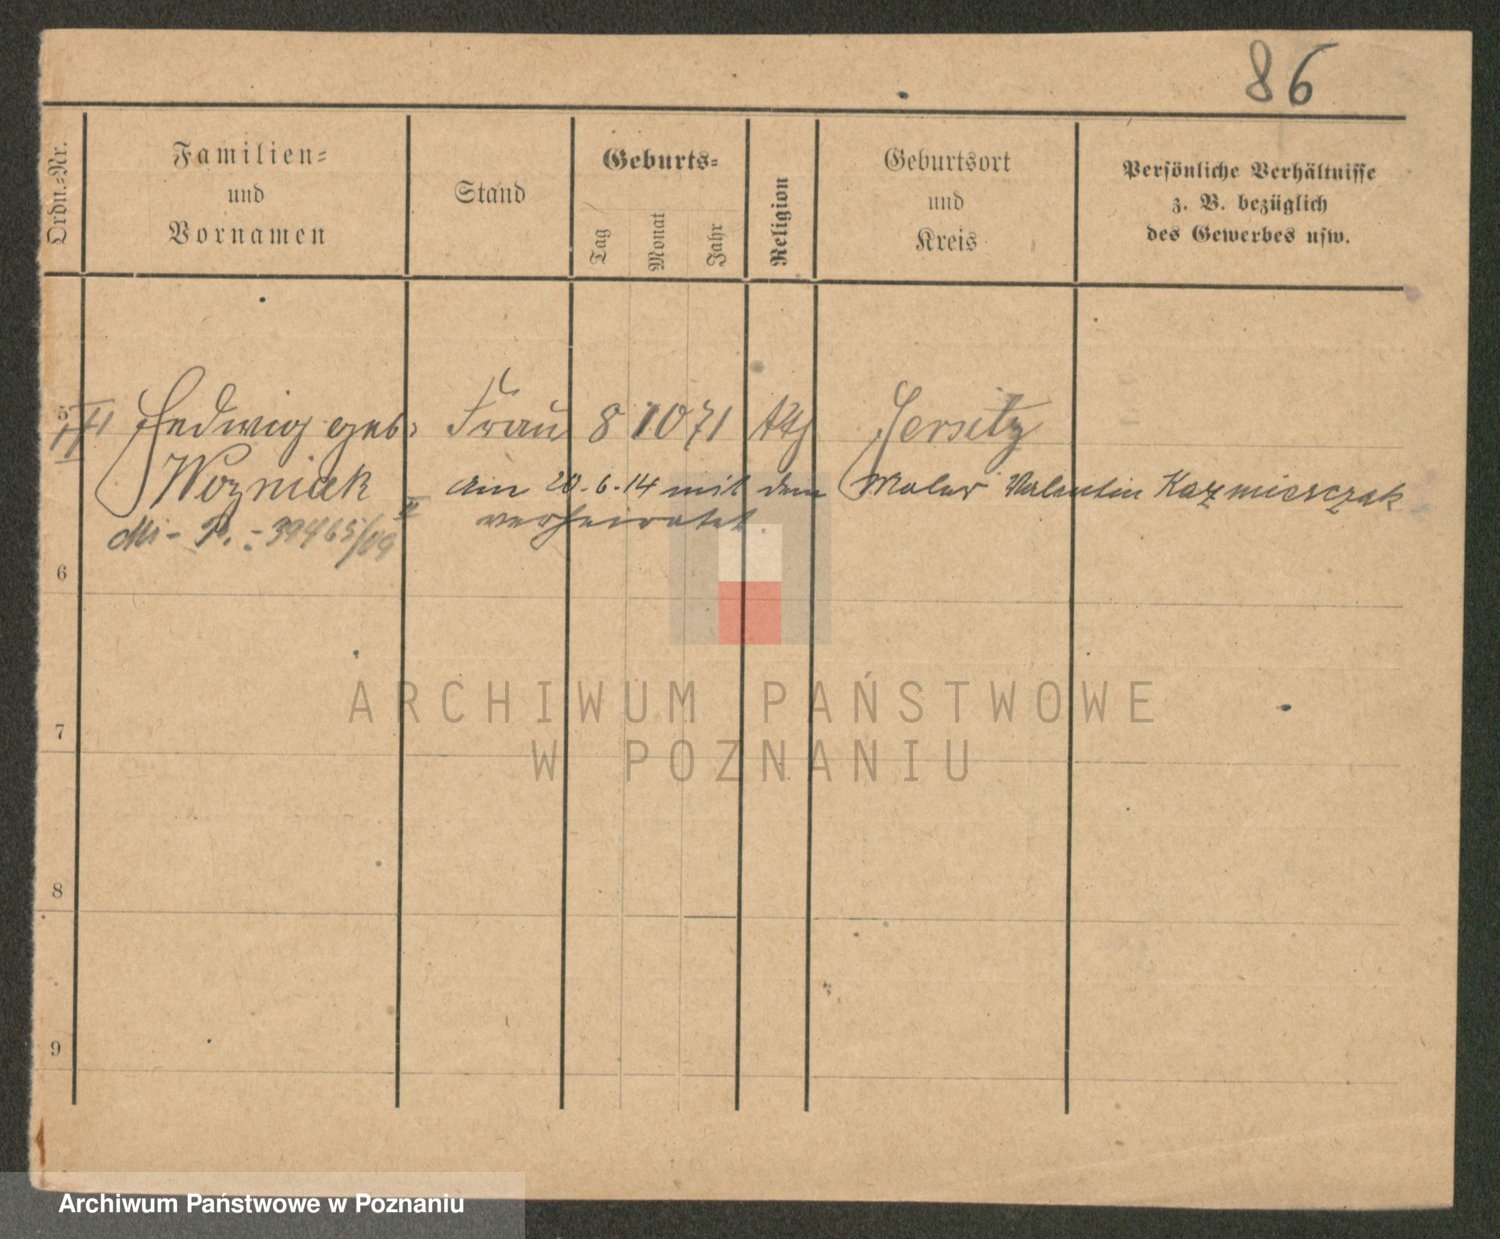 86
Ordn.=Nr.
Familien=
und
Vornamen
Stand
Geburts=
Tag
Monat
Jahr
Religion
Geburtsort
und
Kreis
Persönliche Verhältnisse
z. B. bezüglich
des Gewerbes usw.
5
II Hedwig geb. Frau 8 10 71 kth Jersitz
Wozniak
II am 20.6.14 mit dem Maler Valentin Kazmierczak
verheiratet.
6
7
8
9
ARCHIWUM PAŃSTWOWE
W POZNANIU
Archiwum Państwowe w Poznaniu